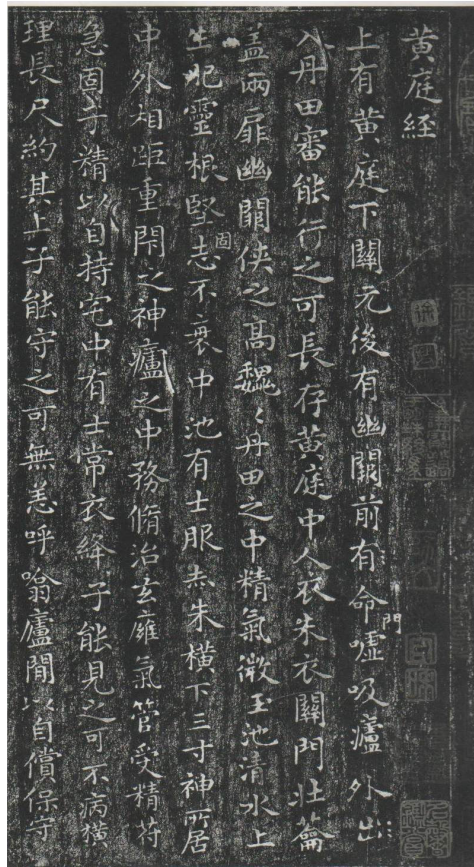 黄庭経
上有黄庭下關元後有幽闕前有命門嘘吸廬外出
入丹田審能行之可長存黄庭中人衣朱衣關門壮籥
盖兩扉幽闕侠之高巍〻丹田之中精氣微玉池清水上
生肥靈根堅固志不衰中池有士服赤朱横下三寸神所居
中外相距重閇之神廬之中務脩治玄廱氣管受精符
急固子精以自持宅中有士常衣絳子能見之可不病横
理長尺約其上子能守之可無恙呼噏廬間以自償保守